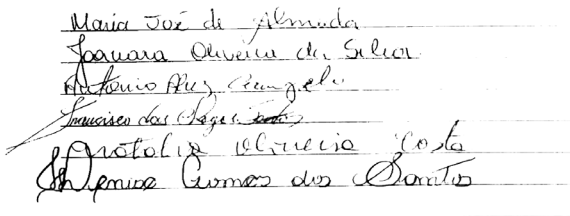 Maria José de Almeida
Joanara Oliveira da Silva
Antonio
Francisco das Chagas Santos
Natalia Oliveira Costa
Denise Gomes dos Santos